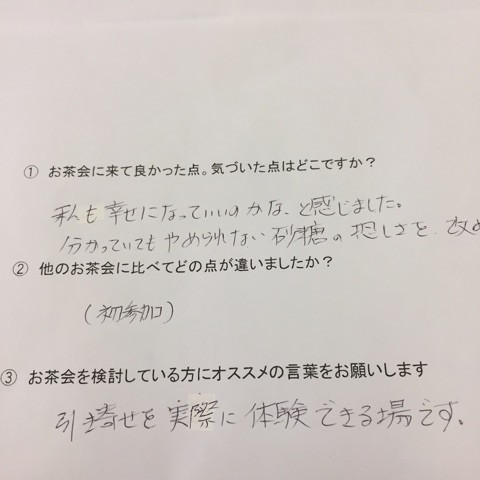 ① お茶会に来て良かった点。気づいた点はどこですか？
私も幸せになっていいのかな、と感じました。
分かっていてもやめられない砂糖の恐しさを、改め
② 他のお茶会に比べてどの点が違いましたか？
（初参加）
③ お茶会を検討している方にオススメの言葉をお願いします
引き寄せを実際に体験できる場です。